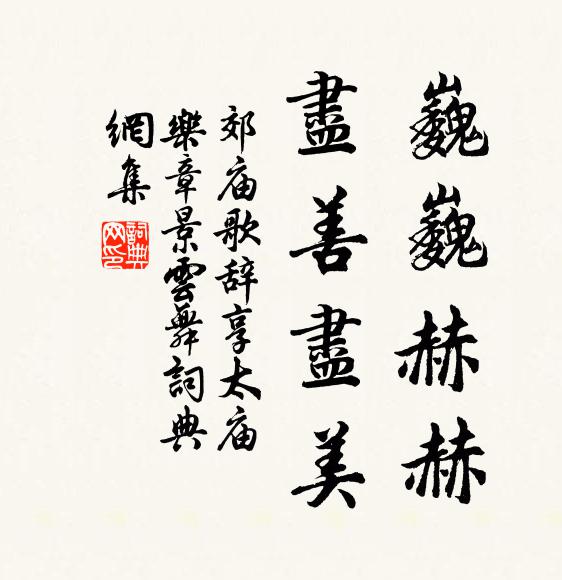 巍巍赫赫
盡善盡美
郊庙歌辞享太庙
樂章景雲舞詞典
網集
詞典网印